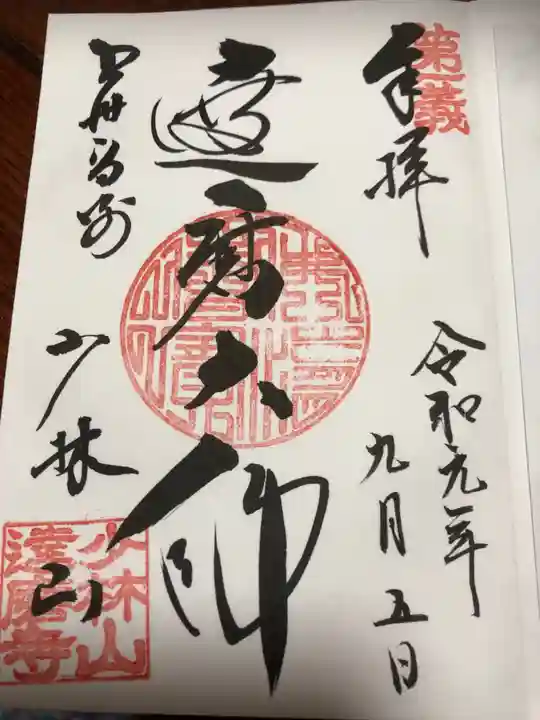 第一義
奉拝
令和元年
九月五日
達磨大師
上州高崎
少林山
少林山
達磨寺